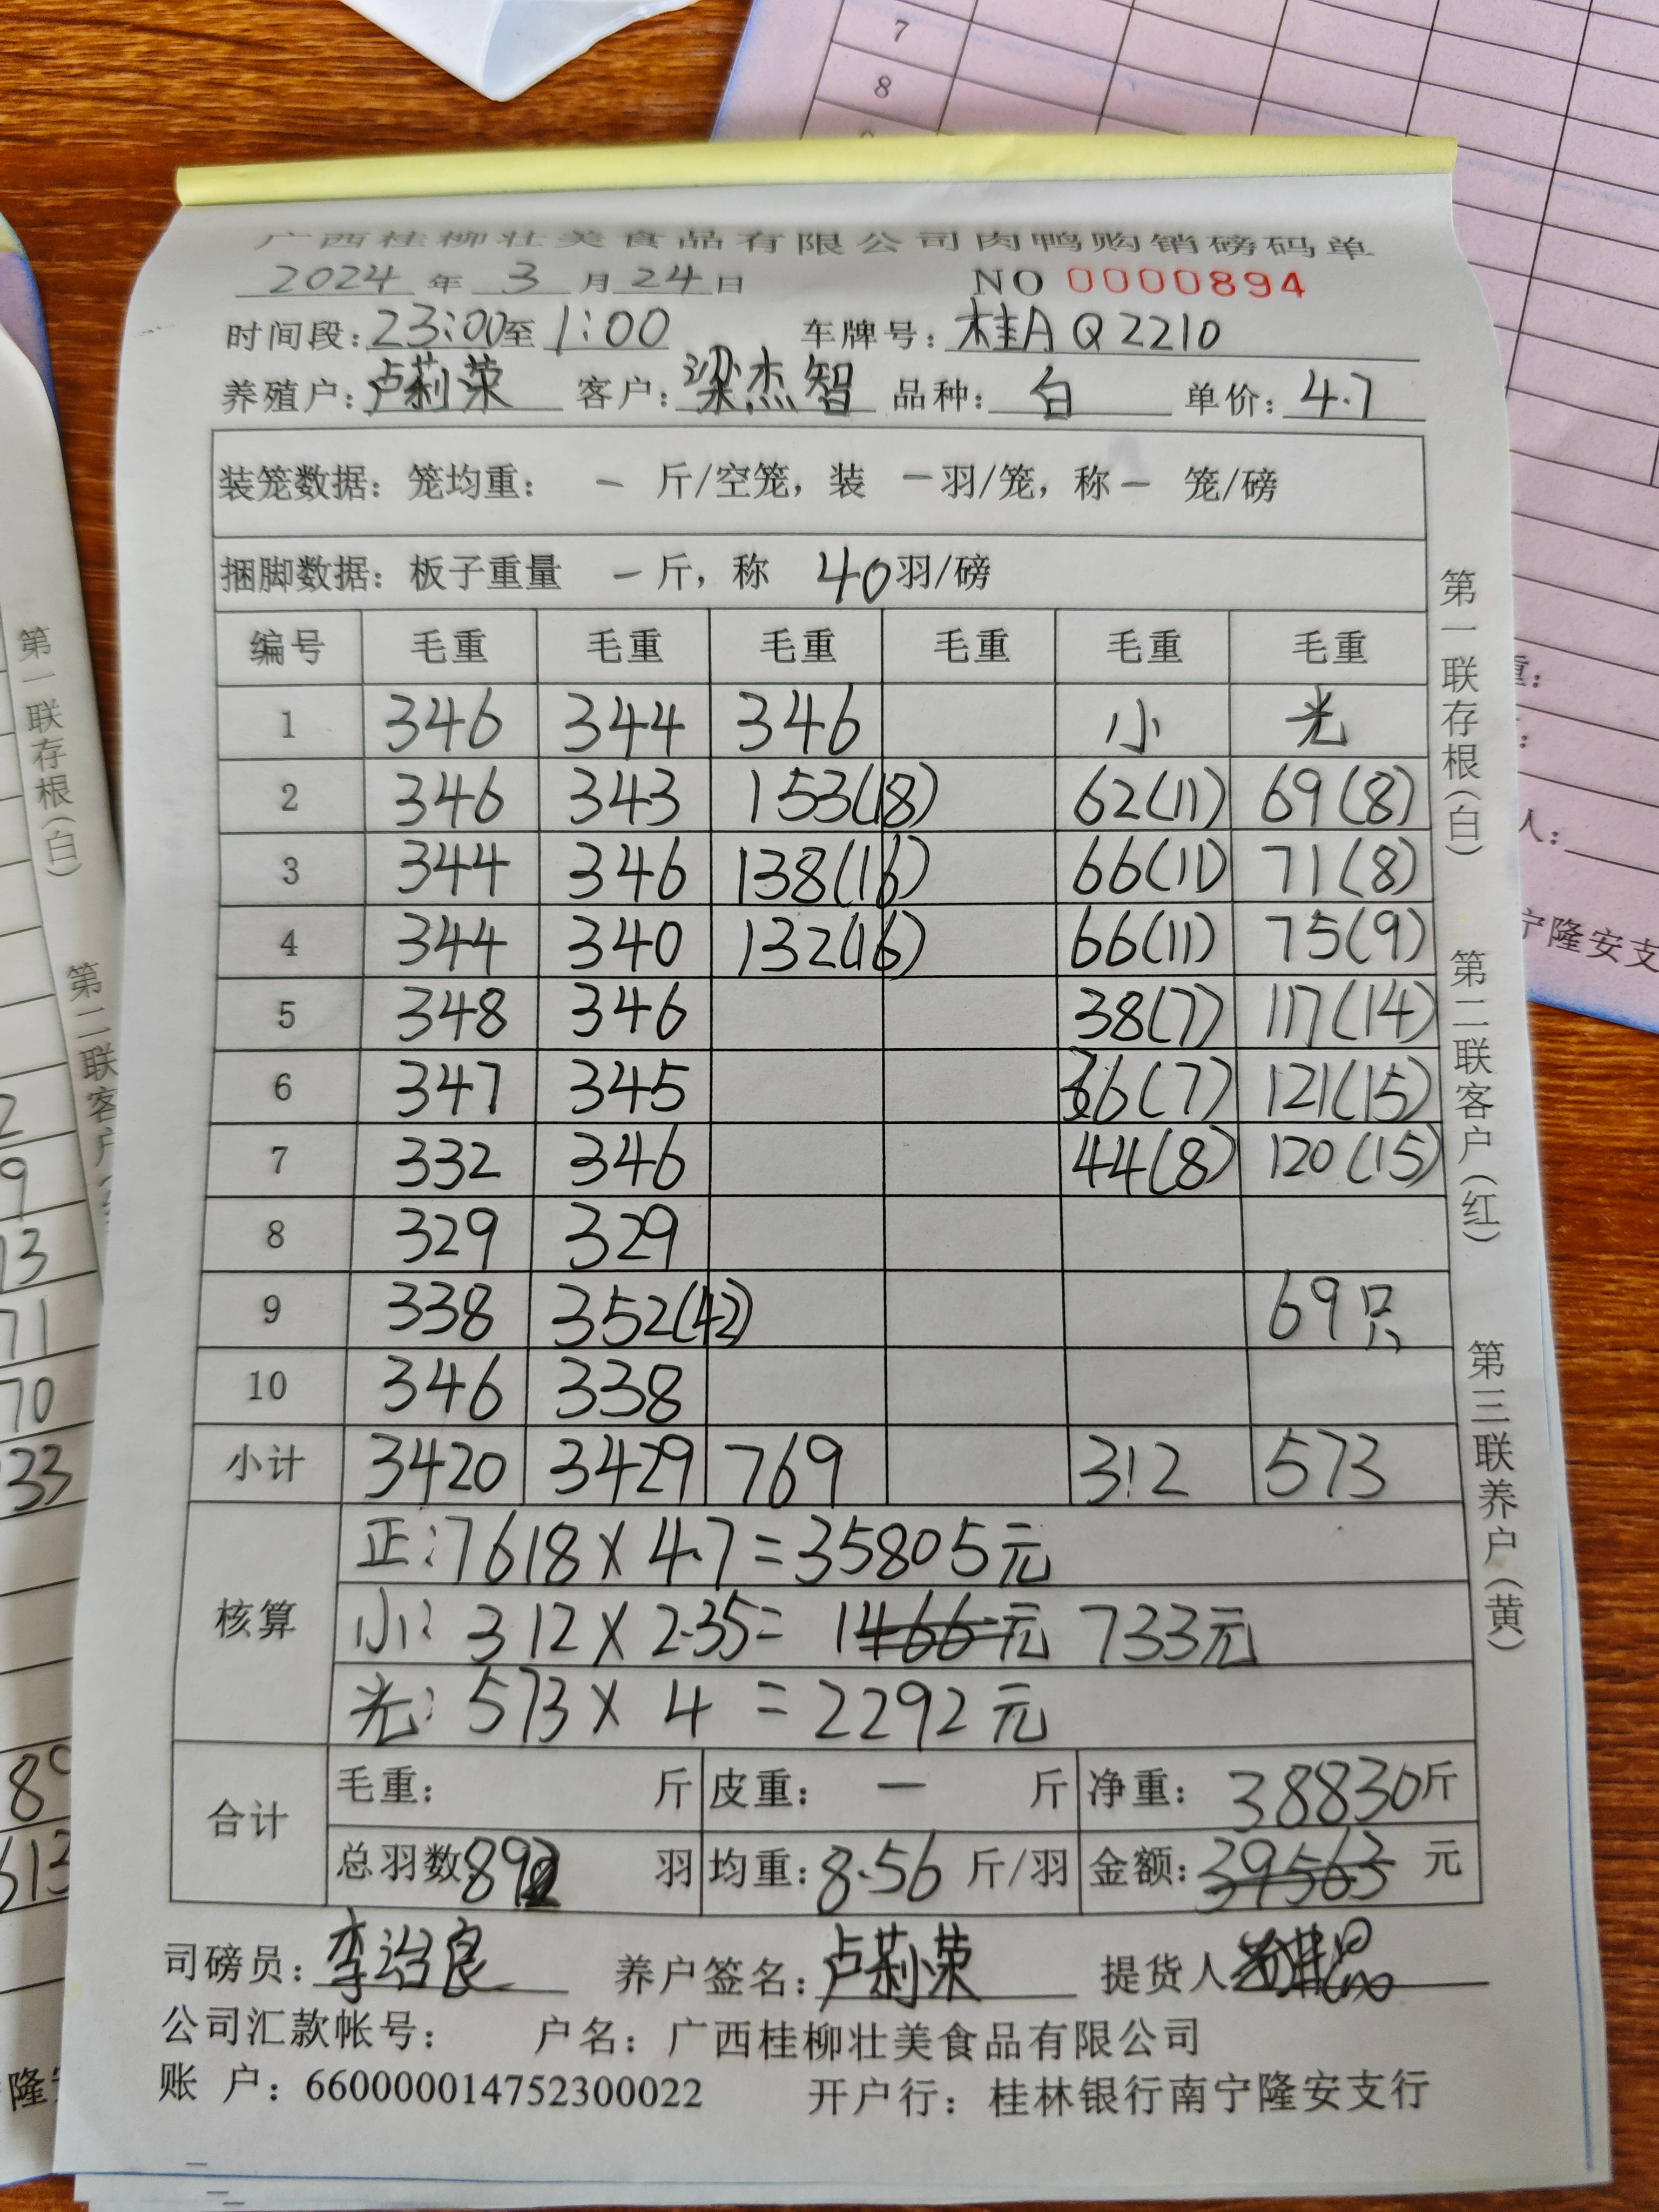 7
8
广西桂柳壮美食品有限公司肉鸭购销磅码单
2024 年 3 月 24 日 NO 0000894
时间段: 23:00 至 1:00 车牌号: 桂A Q2210
养殖户: 卢莉荣 客户: 梁杰智 品种: 白 单价: 4.7
装笼数据: 笼均重: — 斤/空笼, 装 — 羽/笼, 称 — 笼/磅
捆脚数据: 板子重量 — 斤, 称 40 羽/磅
编号 毛重 毛重 毛重 毛重 毛重 毛重
1 346 344 346 小 光
2 346 343 153(18) 62(11) 69(8)
3 344 346 138(16) 66(11) 71(8)
4 344 340 132(16) 66(11) 75(9)
5 348 346 38(7) 117(14)
6 347 345 36(7) 121(15)
7 332 346 44(8) 120(15)
8 329 329
9 338 352(42) 69只
10 346 338
小计 3420 3429 769 312 573
核算
正: 7618×4.7=35805元
小: 312×2.35= 1466元 733元
光: 573×4 =2292元
合计
毛重: 斤 皮重: — 斤 净重: 38830斤
总羽数 892 羽 均重: 8.56 斤/羽 金额: 39563 元
司磅员: 李治良 养户签名: 卢莉荣 提货人
公司汇款帐号: 户名: 广西桂柳壮美食品有限公司
账 户: 660000014752300022 开户行: 桂林银行南宁隆安支行
第一联存根(白)
第二联客户(红)
第三联养户(黄)
第一联存根(白)
第二联客户
宁隆安支